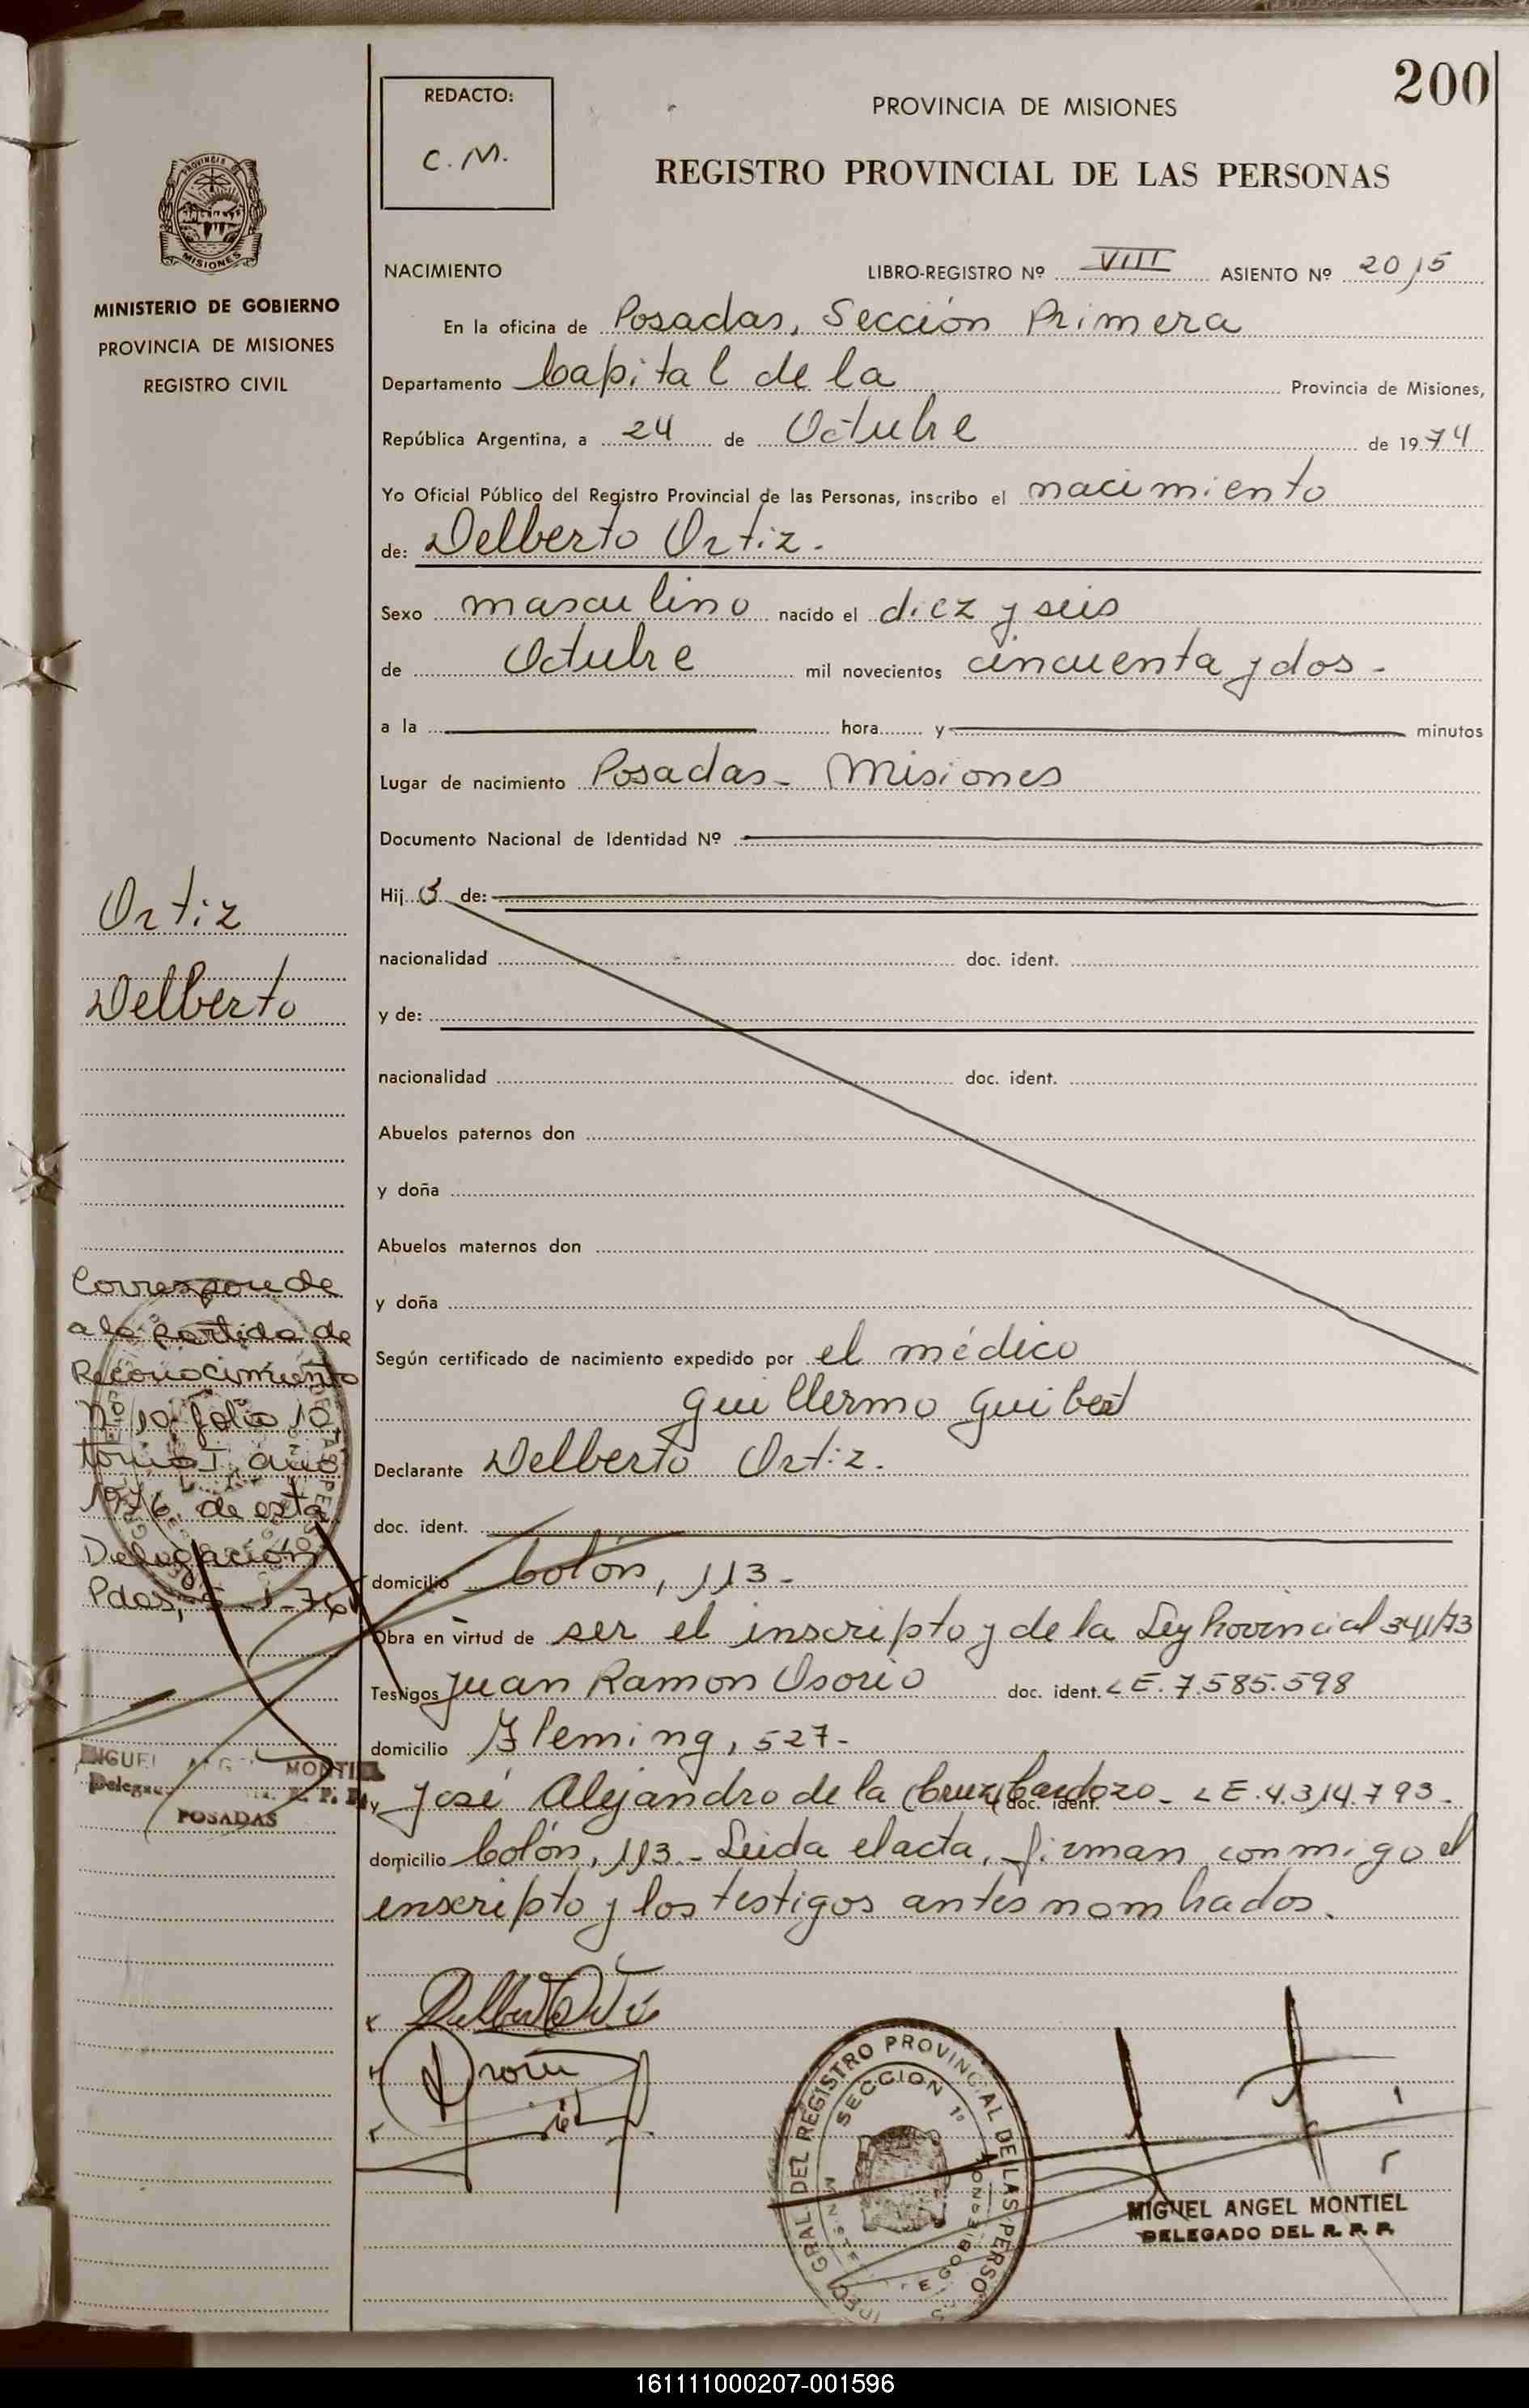 200
REDACTO:
C. M.
PROVINCIA DE MISIONES
REGISTRO PROVINCIAL DE LAS PERSONAS
PROVINCIA DE
MISIONES
MINISTERIO DE GOBIERNO
PROVINCIA DE MISIONES
REGISTRO CIVIL
NACIMIENTO LIBRO-REGISTRO Nº VIII ASIENTO Nº 2015
En la oficina de Posadas, Sección Primera
Departamento Capital de la Provincia de Misiones,
República Argentina, a 24 de Octubre de 1974
Yo Oficial Público del Registro Provincial de las Personas, inscribo el nacimiento
de: Delberto Ortiz.
Sexo masculino nacido el diez y seis
de Octubre mil novecientos cincuenta y dos -
a la hora y minutos
Lugar de nacimiento Posadas - Misiones
Documento Nacional de Identidad Nº
Hij o de:
nacionalidad doc. ident.
y de:
nacionalidad doc. ident.
Abuelos paternos don
y doña
Abuelos maternos don
y doña
Según certificado de nacimiento expedido por el médico
Guillermo Guibert
Declarante Delberto Ortiz.
doc. ident.
domicilio Colón, 113 -
Obra en virtud de ser el inscripto y de la Ley Provincial 341/73
Testigos Juan Ramon Osorio doc. ident. LE. 7.585.598
domicilio Fleming, 527 -
y José Alejandro de la Cruz Cardozo doc. ident. - LE. 4.314.793 -
domicilio Colón, 113 - Leida el acta, firman conmigo el
inscripto y los testigos antes nombrados.
Ortiz
Delberto
Corresponde
a la partida de
Reconocimiento
Nº 10 folio 10
tomo I año
1976 de esta
Delegación
Pdas, 5-1-76
MIGUEL ANGEL MONTIEL
POSADAS
GRAL. DEL REGISTRO PROVINCIAL DE LAS PERSO
SECCION 1ª
MIGUEL ANGEL MONTIEL
DELEGADO DEL R. P. P.
161111000207-001596